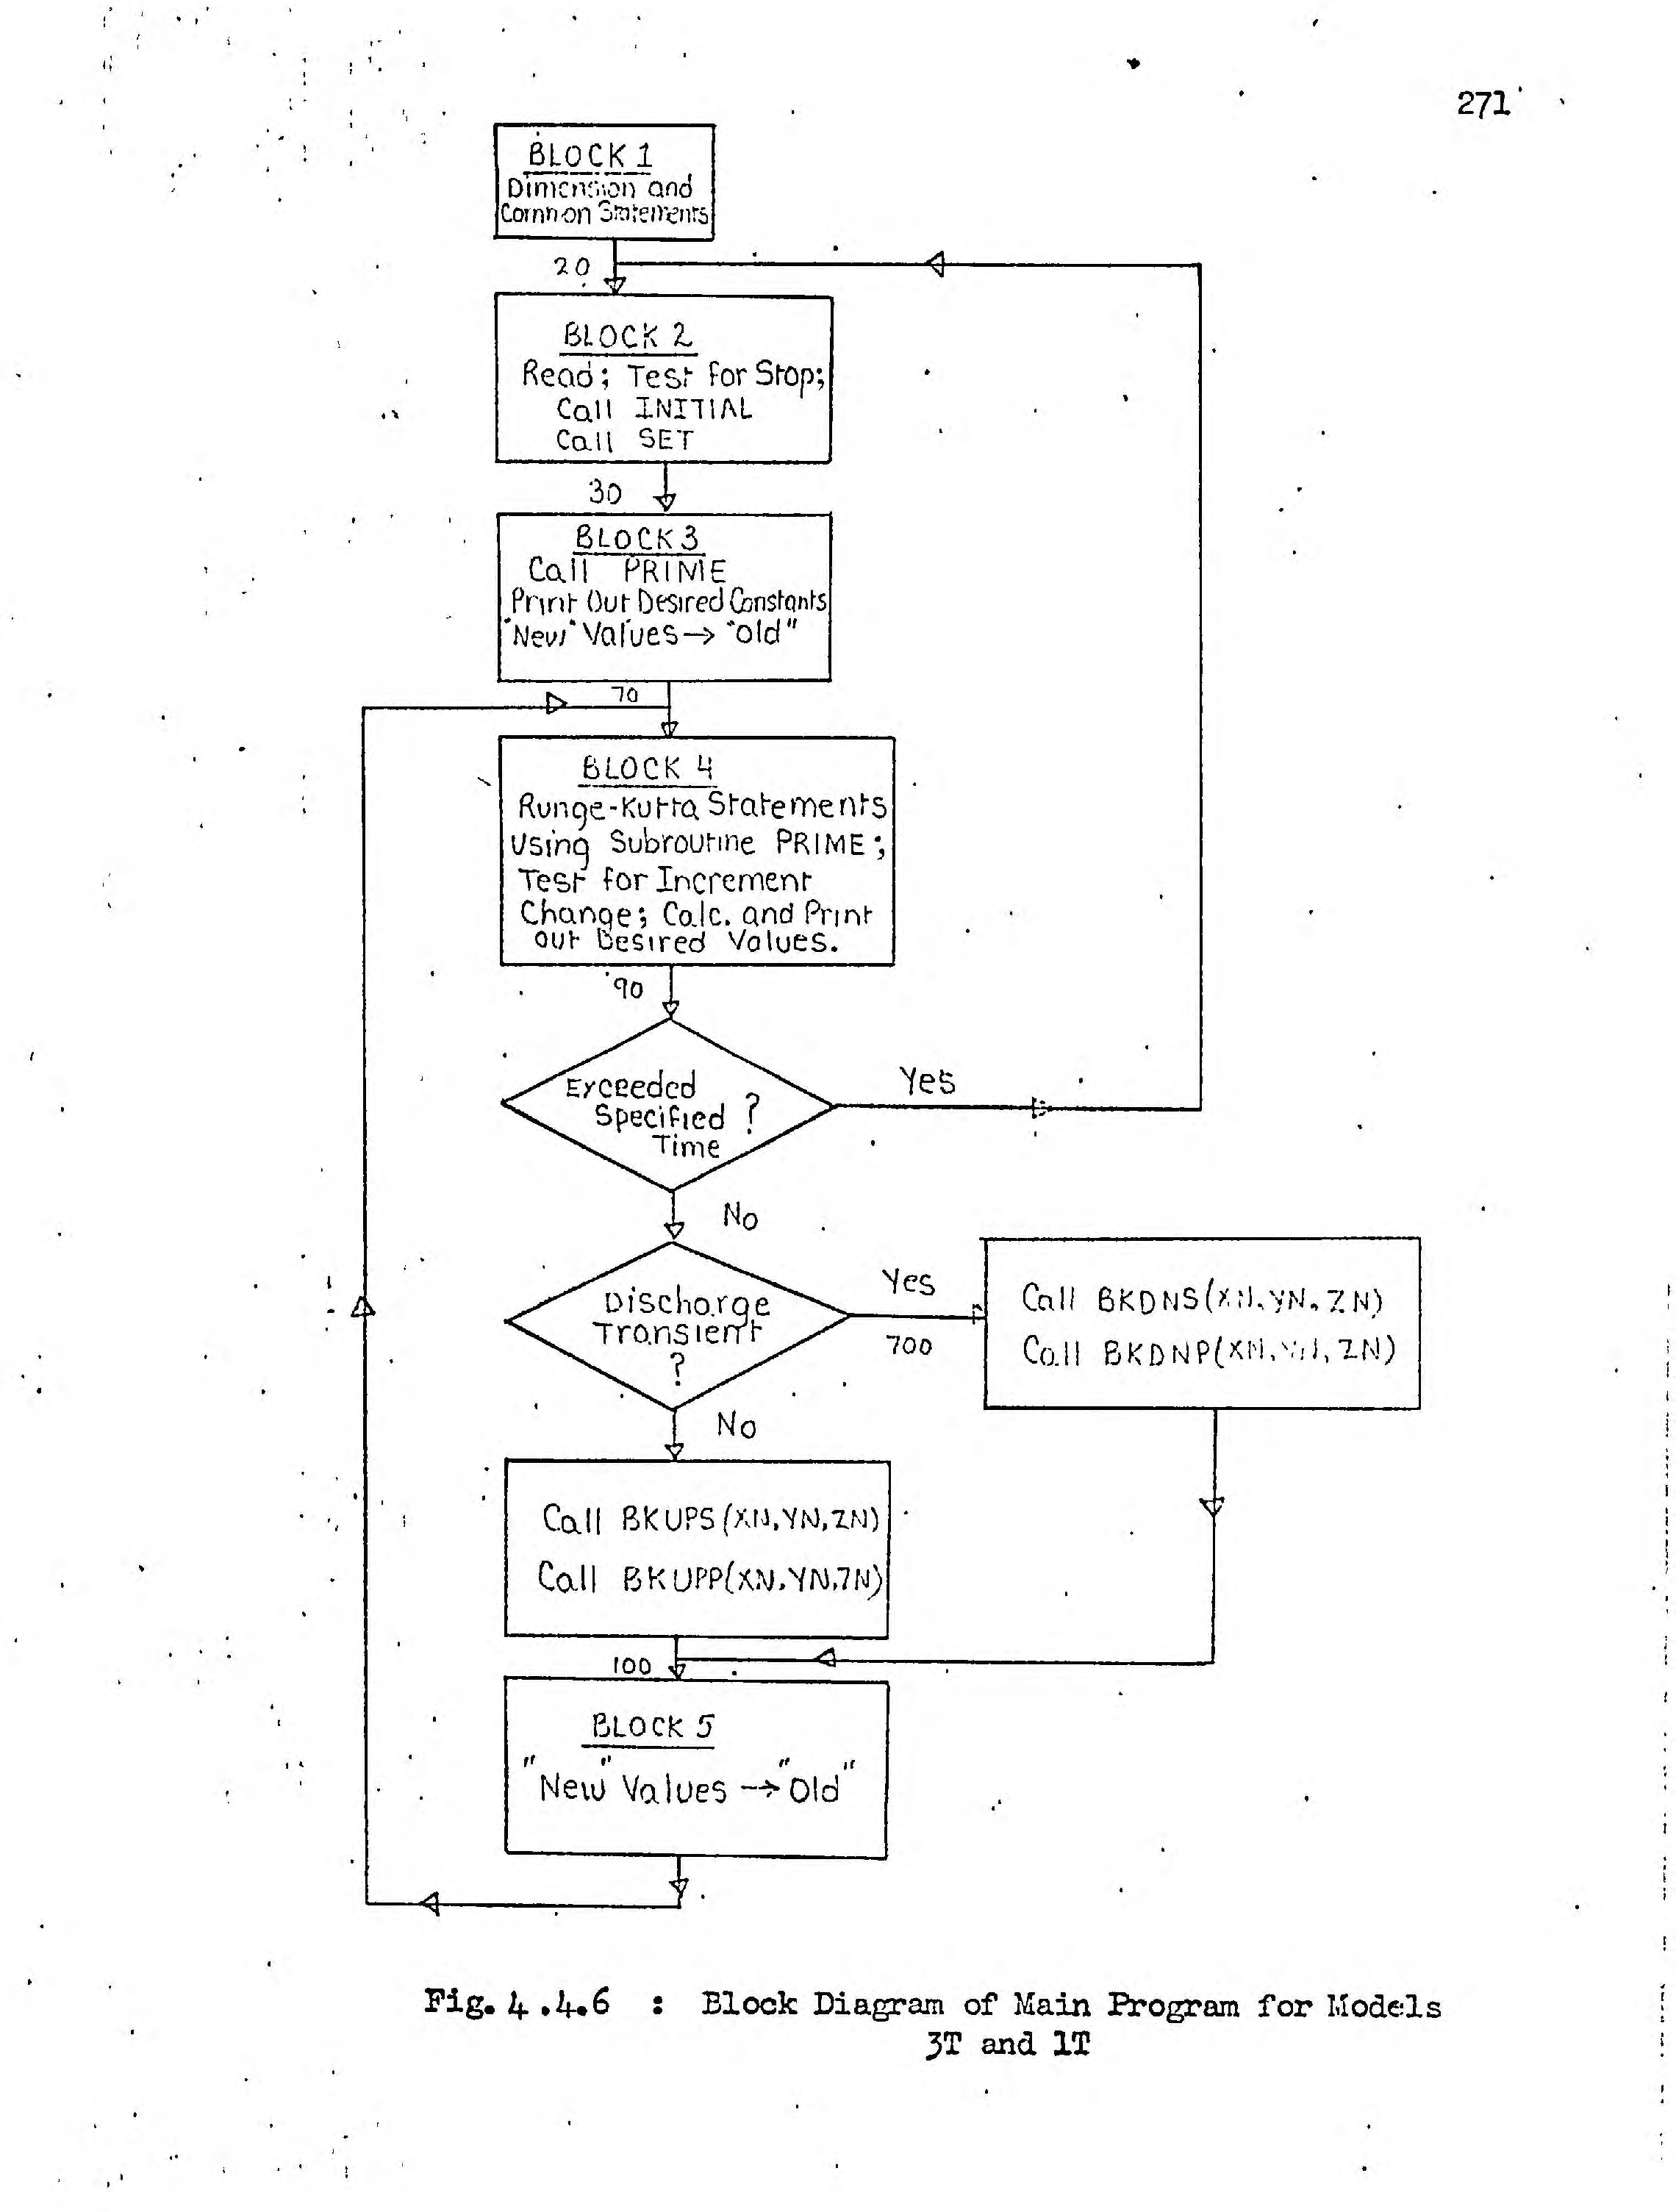 271
BLOCK 1
Dimension and
Common Statements
20
BLOCK 2
Read; Test for Stop;
Call INITIAL
Call SET
30
BLOCK 3
Call PRIME
Print Out Desired Constants
"New" Values → "Old"
70
BLOCK 4
Runge-Kutta Statements
Using Subroutine PRIME;
Test for Increment
Change; Calc. and Print
out Desired Values.
90
Exceeded
Specified ?
Time
Yes
No
Discharge
Transient
?
Yes
700
Call BKDNS(XN,YN,ZN)
Call BKDNP(XN,YN,ZN)
No
Call BKUPS(XN,YN,ZN)
Call BKUPP(XN,YN,ZN)
100
BLOCK 5
"New" Values → "Old"
Fig. 4.4.6 : Block Diagram of Main Program for Models
3T and 1T